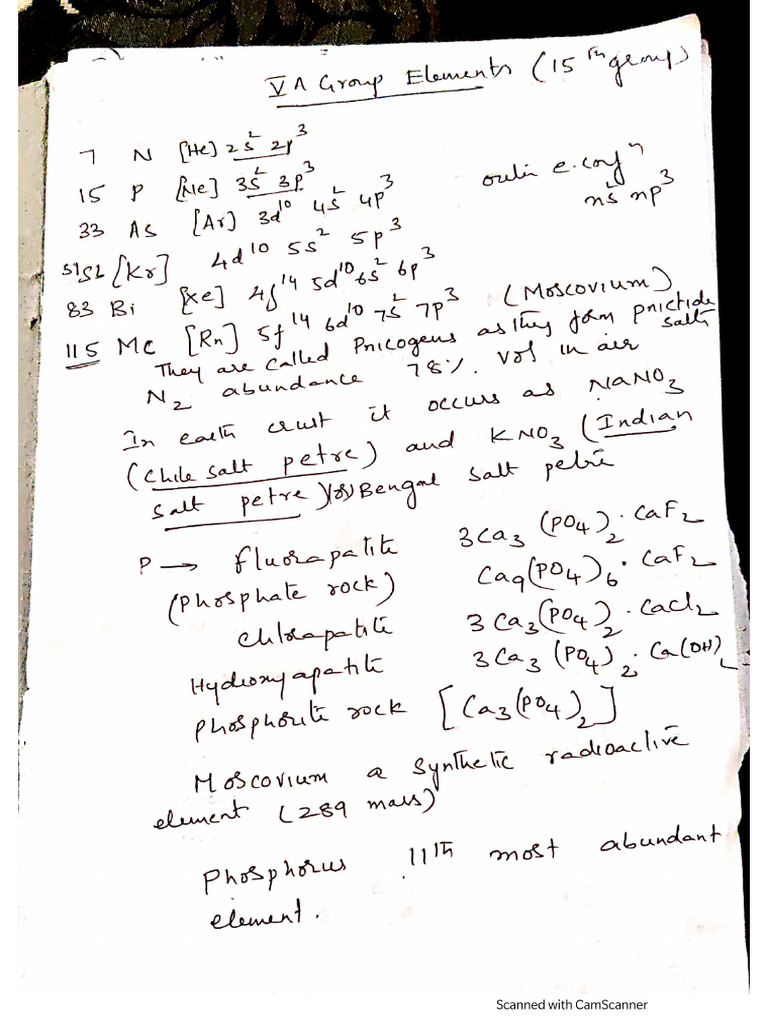 V A Group Elements (15th group)
7 N [He] 2s² 2p³
15 P [Ne] 3s² 3p³
outer e. confⁿ
ns² np³
33 As [Ar] 3d¹⁰ 4s² 4p³
51 Sb [Kr] 4d¹⁰ 5s² 5p³
83 Bi [Xe] 4f¹⁴ 5d¹⁰ 6s² 6p³
115 Mc [Rn] 5f¹⁴ 6d¹⁰ 7s² 7p³ (Moscovium)
They are called Pnicogens as they form pnictide salts
N₂ abundance 78% vol in air
In earth crust it occurs as NaNO₃
(Chile salt petre) and KNO₃ (Indian
salt petre) (or) Bengal salt petre
P → fluorapatite 3Ca₃(PO₄)₂·CaF₂
(Phosphate rock) Ca₉(PO₄)₆·CaF₂
Chlorapatite 3Ca₃(PO₄)₂·CaCl₂
Hydroxyapatite 3Ca₃(PO₄)₂·Ca(OH)₂
Phosphorite rock [Ca₃(PO₄)₂]
Moscovium a synthetic radioactive
element (289 mass)
Phosphorus 11th most abundant
element.
Scanned with CamScanner